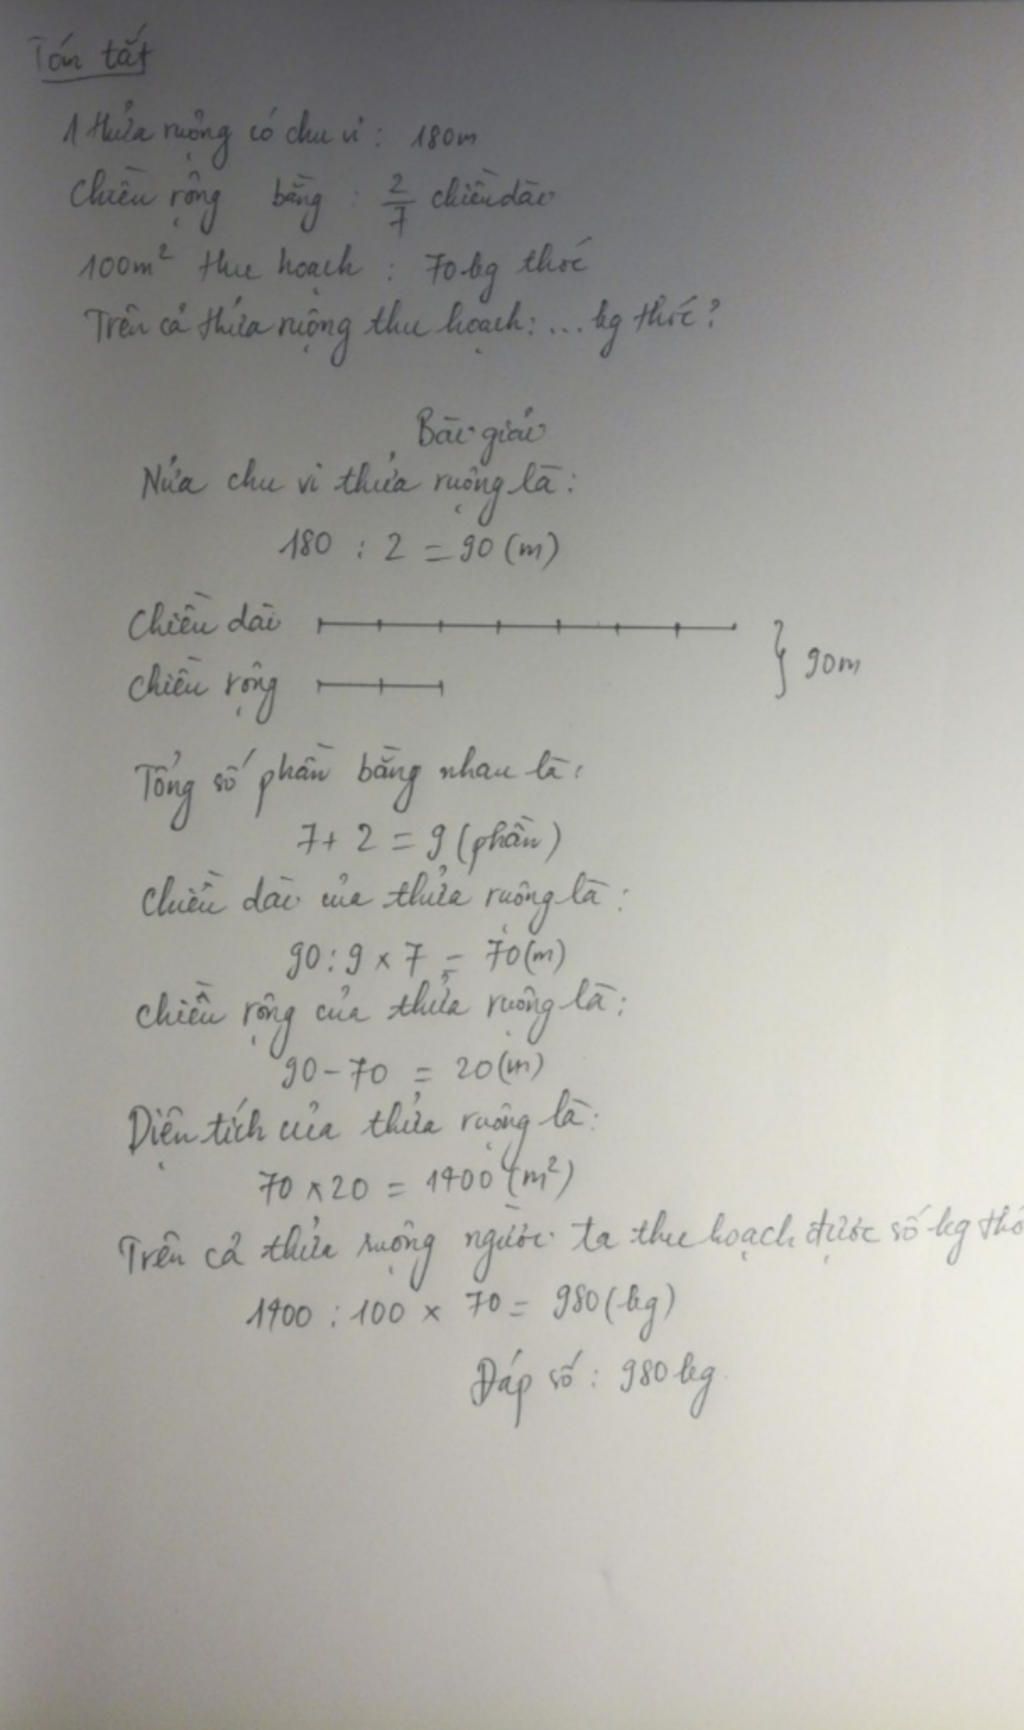 Tóm tắt
1 thửa ruộng có chu vi : 180m
Chiều rộng bằng : 2/7 chiều dài
100m² thu hoạch : 70 kg thóc
Trên cả thửa ruộng thu hoạch : ... kg thóc ?
Bài giải
Nửa chu vi thửa ruộng là :
180 : 2 = 90 (m)
Chiều dài
Chiều rộng
90m
Tổng số phần bằng nhau là :
7 + 2 = 9 (phần)
Chiều dài của thửa ruộng là :
90 : 9 × 7 = 70 (m)
Chiều rộng của thửa ruộng là :
90 - 70 = 20 (m)
Diện tích của thửa ruộng là :
70 × 20 = 1400 (m²)
Trên cả thửa ruộng người ta thu hoạch được số kg
1400 : 100 × 70 = 980 (kg)
Đáp số : 980 kg